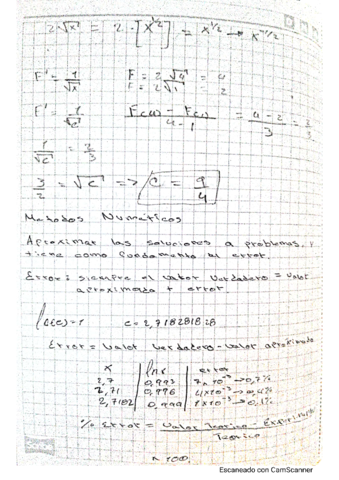 2√x = 2 · [x^1/2] = x^1/2 → x^-1/2
F' = 1/√x    F = 2√4 = 4
F = 2√1 = 2
F' = 1/√c    F(4) - F(1) / 4 - 1 = 4 - 2 / 3 = 2/3
1/√c = 2/3
3/2 = √c => c = 9/4
Metodos Numericos
Aproximar las soluciones a problemas, y
tiene como fundamento al error.
Error: siempre el valor verdadero = valor
aproximado + error.
c = 2,718281828
Error = valor verdadero - valor aproximado
x | ln x | error
2,7 | 0,993 | 7x10^-3 → 0,7%
2,71 | 0,996 | 4x10^-3 → 0,4%
2,7182 | 0,999 | 1x10^-3 → 0,1%
% Error = Valor Teorico - Experimental
Teorico
x 100.
Escaneado con CamScanner